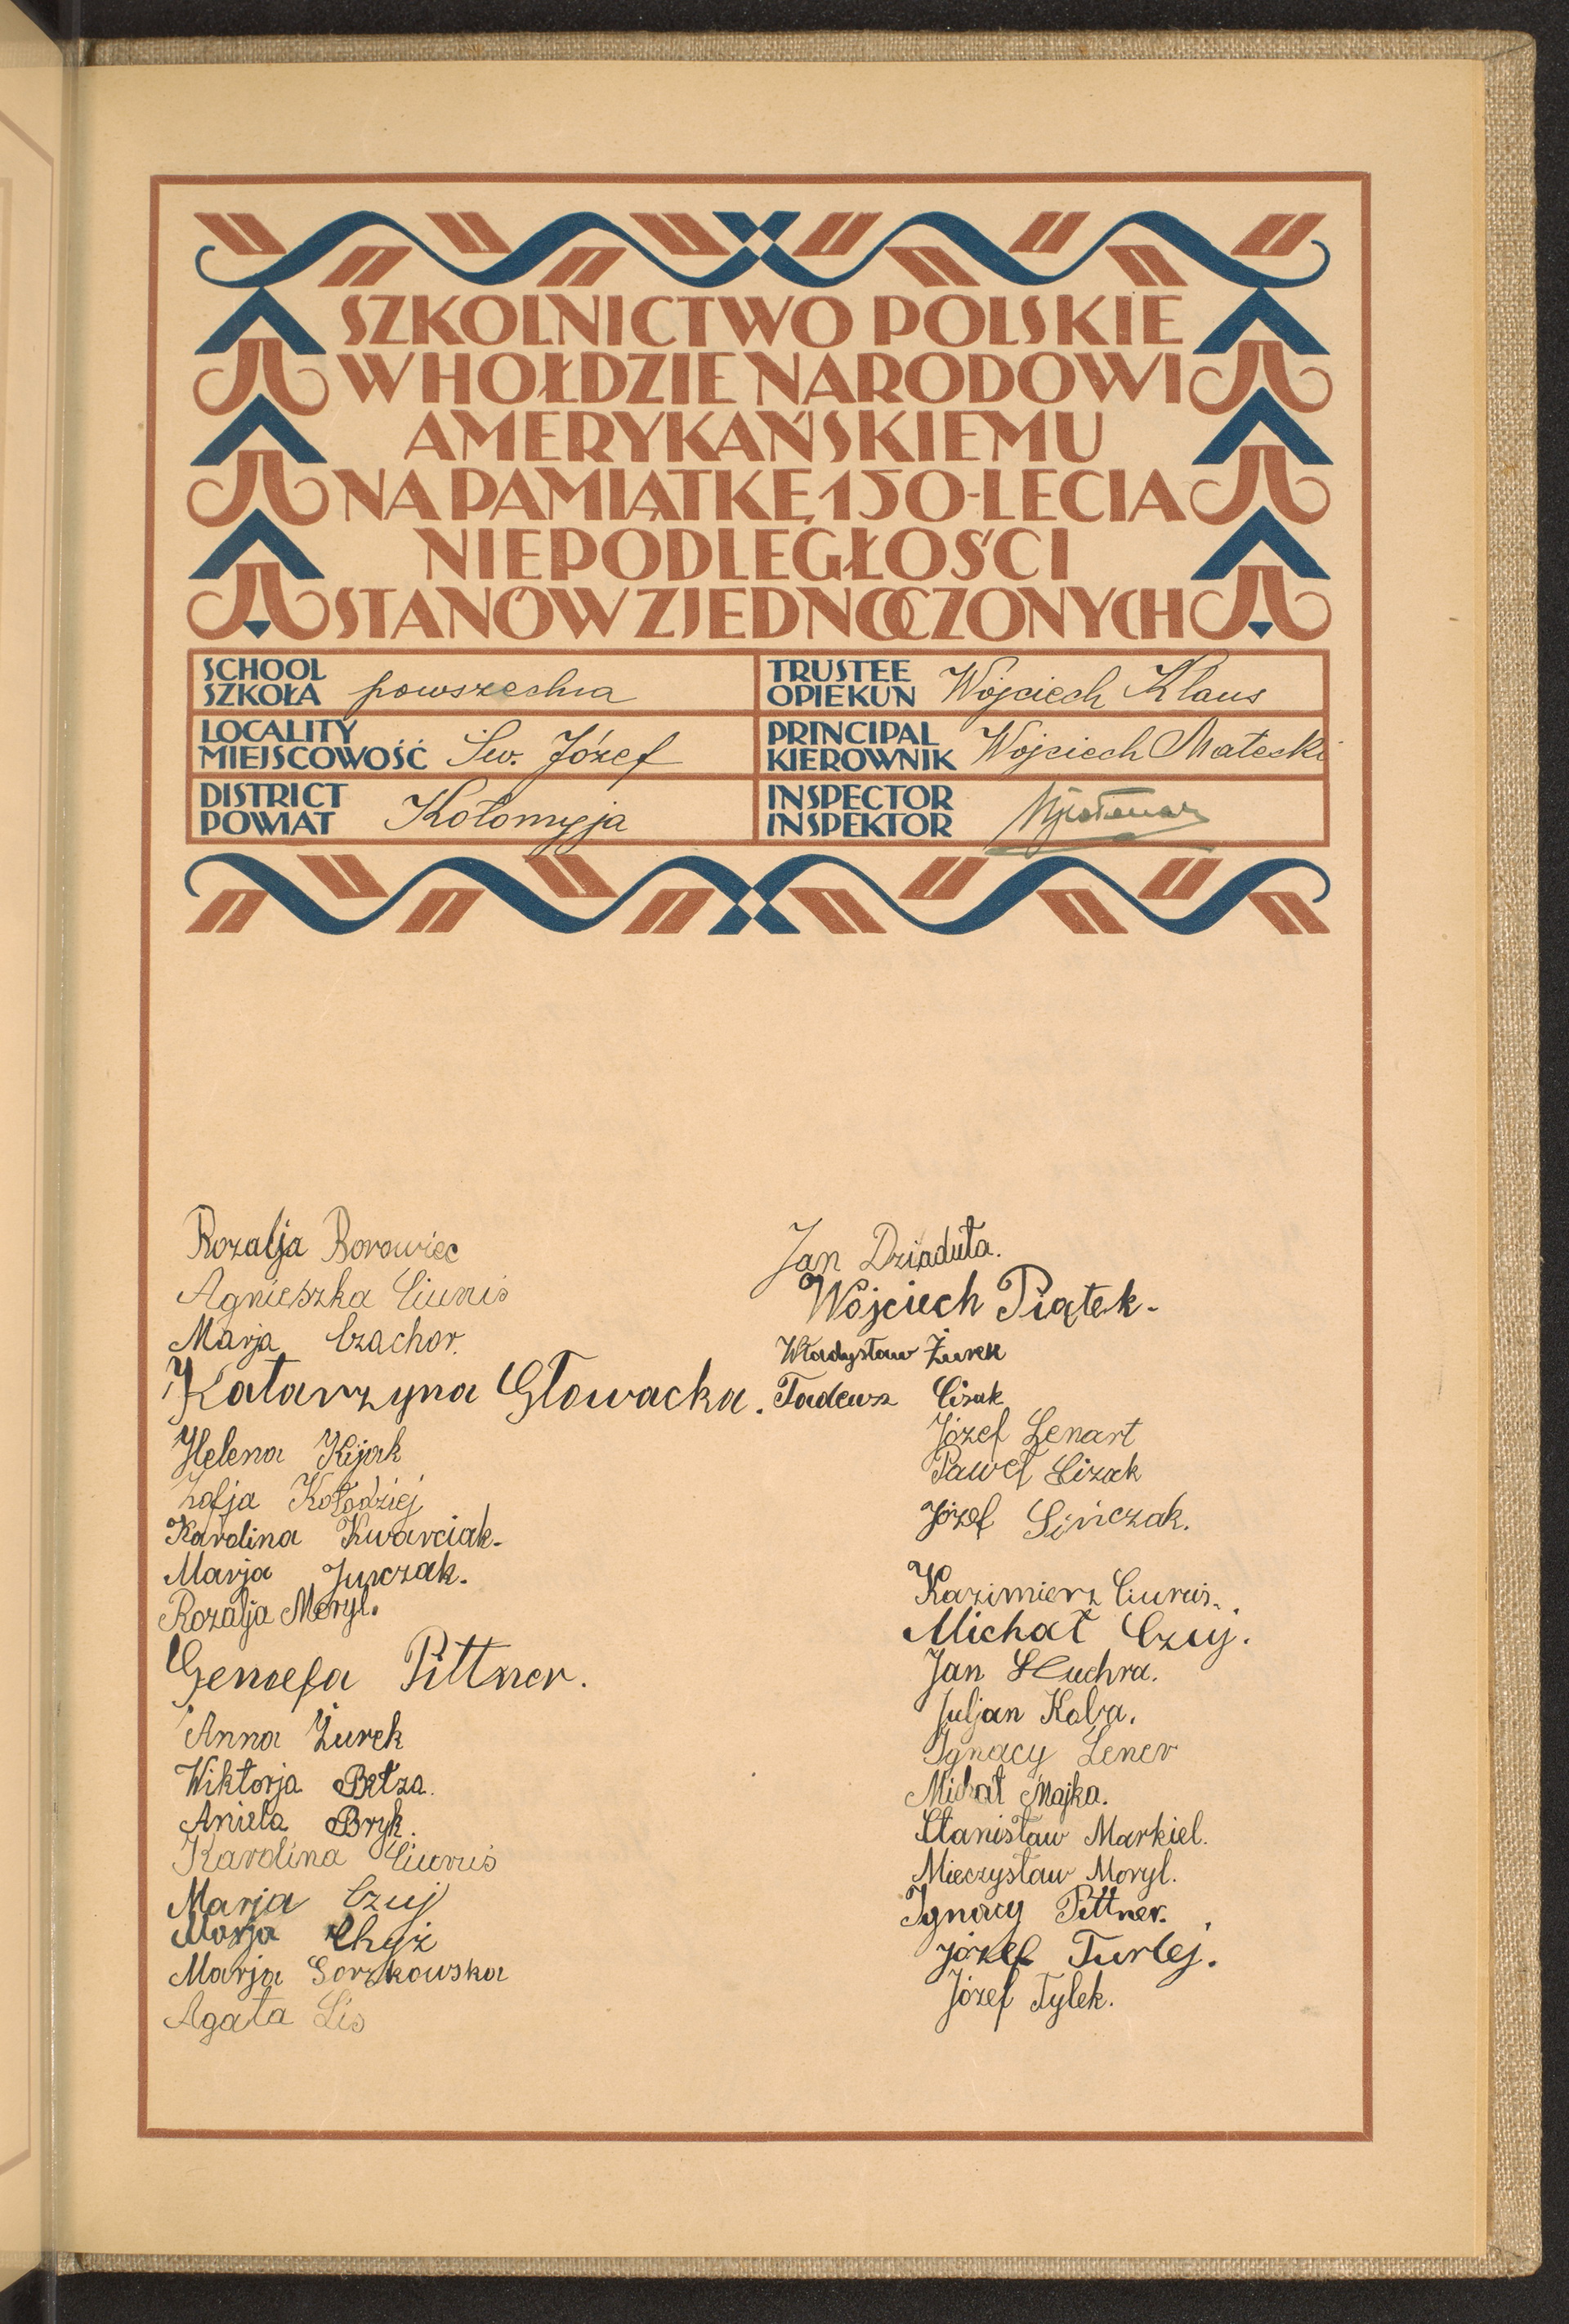 SZKOLNICTWO POLSKIE
W HOŁDZIE NARODOWI
AMERYKAŃSKIEMU
NA PAMIĄTKĘ 150-LECIA
NIEPODLEGŁOŚCI
STANÓW ZJEDNOCZONYCH
SCHOOL
SZKOŁA powszechna
TRUSTEE
OPIEKUN Wojciech Klaus
LOCALITY
MIEJSCOWOŚĆ Św. Józef
PRINCIPAL
KIEROWNIK Wojciech Małecki
DISTRICT
POWIAT Kołomyja
INSPECTOR
INSPEKTOR
Rozalja Borowiec
Agnieszka Ciuruś
Marja Czachor.
Katarzyna Głowacka.
Helena Kijak
Zofja Kołodziej
Karolina Kwarciak.
Marja Jurczak.
Rozalja Moryl.
Genowefa Pittner.
Anna Żurek
Wiktorja Bełza.
Aniela Bryk.
Karolina Ciuruś
Marja Czuj
Marja Chyż
Marja Gorzkowska
Agata Lis
Jan Dziaduła.
Wojciech Piątek.
Władysław Żurek
Tadeusz Cisak
Józef Lenart
Paweł Lizak
Józef Sińczak.
Kazimierz Ciuruś.
Michał Czuj.
Jan Kuchra.
Juljan Kolra.
Ignacy Lener
Michał Majka.
Stanisław Markiel.
Mieczysław Moryl.
Ignacy Pittner.
Józef Turlej.
Józef Tylek.